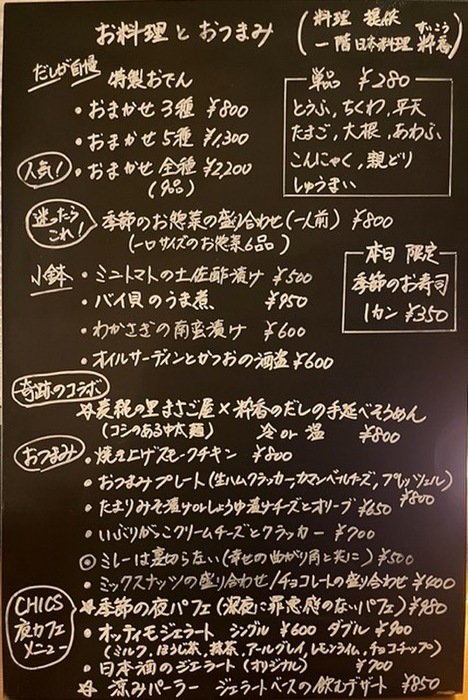 お料理とおつまみ
(料理 提供
一階日本料理 粋香)
すいこう
だしが自慢 特製おでん
・おまかせ 3種 ¥800
・おまかせ 5種 ¥1,300
人気! ・おまかせ 全種 ¥2,200
(9品)
単品 ¥280
とうふ、ちくわ、平天
たまご、大根、あわふ
こんにゃく、親どり
しゅうまい
迷ったらこれ! 季節のお惣菜の盛り合わせ(一人前) ¥800
(一口サイズのお惣菜6品)
小鉢 ・ミニトマトの土佐酢漬け ¥500
・バイ貝のうま煮 ¥950
・わかさぎの南蛮漬け ¥600
・オイルサーディンとかつおの酒盗 ¥600
本日 限定
季節のお寿司
1カン ¥350
奇跡のコラボ
麦税の里まさご屋×粋香のだしの手延べそうめん
(コシのある中太麺) 冷 or 温 ¥800
おつまみ ・焼き上げスモークチキン ¥800
・おつまみプレート(生ハムクラッカー、カマンベールチーズ、プレッツェル) ¥800
・たまりみそ漬けのしょうゆ漬けチーズとオリーブ ¥650
・いぶりがっこクリームチーズとクラッカー ¥700
◉ミレーは裏切らない(幸せの曲がり角と共に) ¥500
・ミックスナッツの盛り合わせ/チョコレートの盛り合わせ ¥400
CHICS
夜カフェ
メニュー
季節の夜パフェ(深夜に罪悪感のないパフェ) ¥980
・オッティモジェラート シングル ¥600 ダブル ¥900
(ミルク、ほうじ茶、抹茶、アールグレイ、レモンライム、チョコチップ)
・日本酒のジェラート(オリジナル) ¥700
涼みパーラー ジェラートベースの飲むデザート ¥850